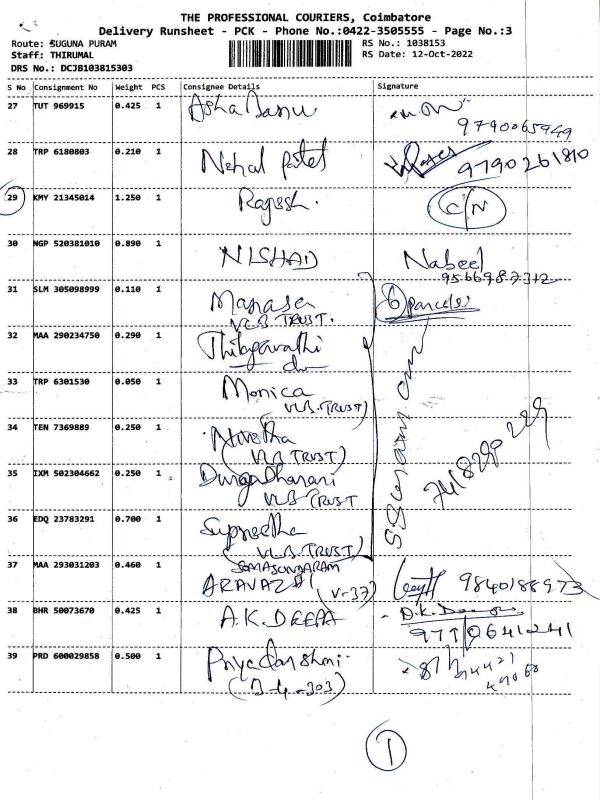 THE PROFESSIONAL COURIERS, Coimbatore
Delivery Runsheet - PCK - Phone No.:0422-3505555 - Page No.:3
Route: SUGUNA PURAM RS No.: 1038153
Staff: THIRUMAL RS Date: 12-Oct-2022
DRS No.: DCJB103815303
S No Consignment No Weight PCS Consignee Details Signature
27 TUT 969915 0.425 1 Asha Banu
9790065949
28 TRP 6180803 0.210 1 Nehal Patel 9790261810
29 KMY 21345014 1.250 1 Rajesh. C/N
30 NGP 520381010 0.890 1 NISHAD Nabeel
9566987312
31 SLM 305098999 0.110 1 Manasa 6 parcels
VLB TRUST.
32 MAA 290234750 0.290 1 Thilagavathi
33 TRP 6301530 0.050 1 Monica
VLB.TRUST)
34 TEN 7369889 0.250 1 Nivetha 7418290229
(VLB TRUST)
35 IXM 502304662 0.250 1 Durga Dharani
VLB TRUST
36 EDQ 23783291 0.700 1 Supreetha
(VLB.TRUST)
37 MAA 293031203 0.460 1 SOMASUNDARAM
ARAVAZHI (V-37) 9840188973
38 BHR 50073670 0.425 1 A.K.DEEPA A.K.Deepa
9770641241
39 PRD 600029858 0.500 1 Priyadarshini.
(B-4-303)
1